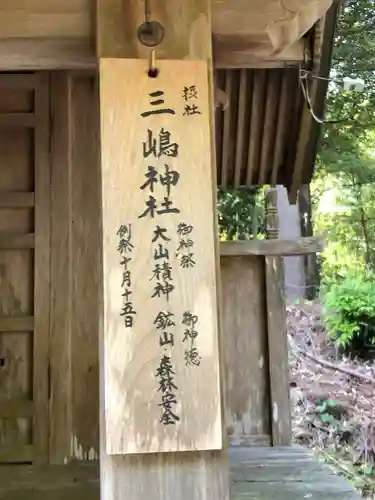 摂社
三嶋神社
御神祭
大山積神
御神徳
鉱山・森林安全
例祭 十月十五日